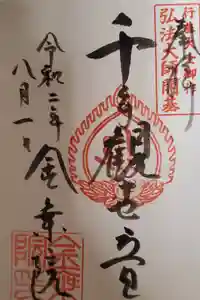 奉拝
行基菩薩御作
弘法大師開基
千手觀世音
金乗院
令和二年
八月一日